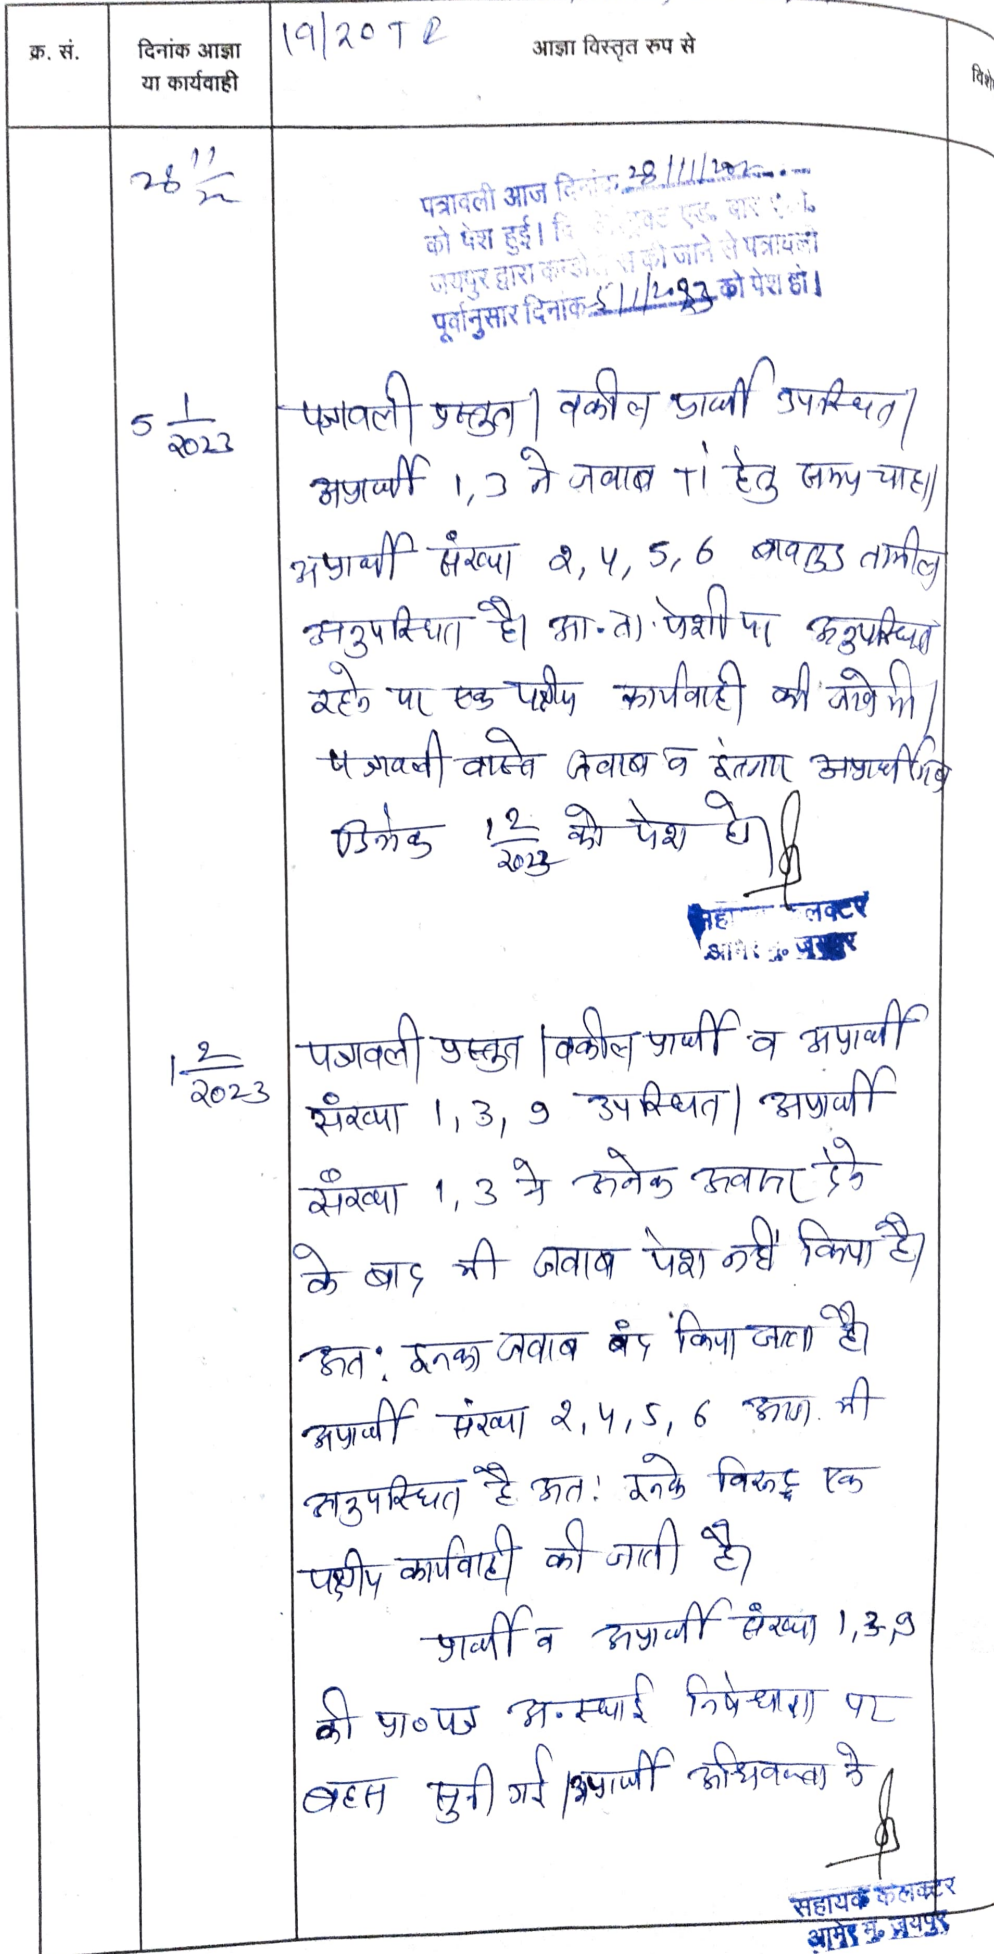 19/20 T R
क्र. सं.
दिनांक आज्ञा
या कार्यवाही
आज्ञा विस्तृत रुप से
28 11/22
पत्रावली आज दिनांक 28/11/202
को पेश हुई। एड. बार
जयपुर द्वारा की जाने से पत्रावली
पूर्वानुसार दिनांक 5/1/2023 को पेश हो।
5 1/2023
पत्रावली प्रस्तुत। वकील प्रार्थी उपस्थित।
अप्रार्थी 1,3 ने जवाब TI हेतु समय चाहा।
अप्रार्थी संख्या 2,4,5,6 बावजुद तामील
अनुपस्थित है। आ.ता. पेशी पर अनुपस्थित
रहने पर एक पक्षीय कार्यवाही की जावेगी।
पत्रावली वास्ते जवाब व इंतजार अप्रार्थीगण
दिनांक 1 2/2023 को पेश हो।
सहा लक्टर
आमेर मु. जयपुर
1 2/2023
पत्रावली प्रस्तुत। वकील प्रार्थी व अप्रार्थी
संख्या 1,3,9 उपस्थित। अप्रार्थी
संख्या 1,3 ने अनेक अवसर देने
के बाद भी जवाब पेश नहीं किया है।
अत: इनका जवाब बंद किया जाता है।
अप्रार्थी संख्या 2,4,5,6 आज भी
अनुपस्थित है अत: इनके विरूद्ध एक
पक्षीय कार्यवाही की जाती है।
प्रार्थी व अप्रार्थी संख्या 1,3,9
की प्रा०पत्र अ.स्थाई निषेधाज्ञा पर
बहस सुनी गई। अप्रार्थी अधिवक्ता ने
सहायक कलक्टर
आमेर मु. जयपुर